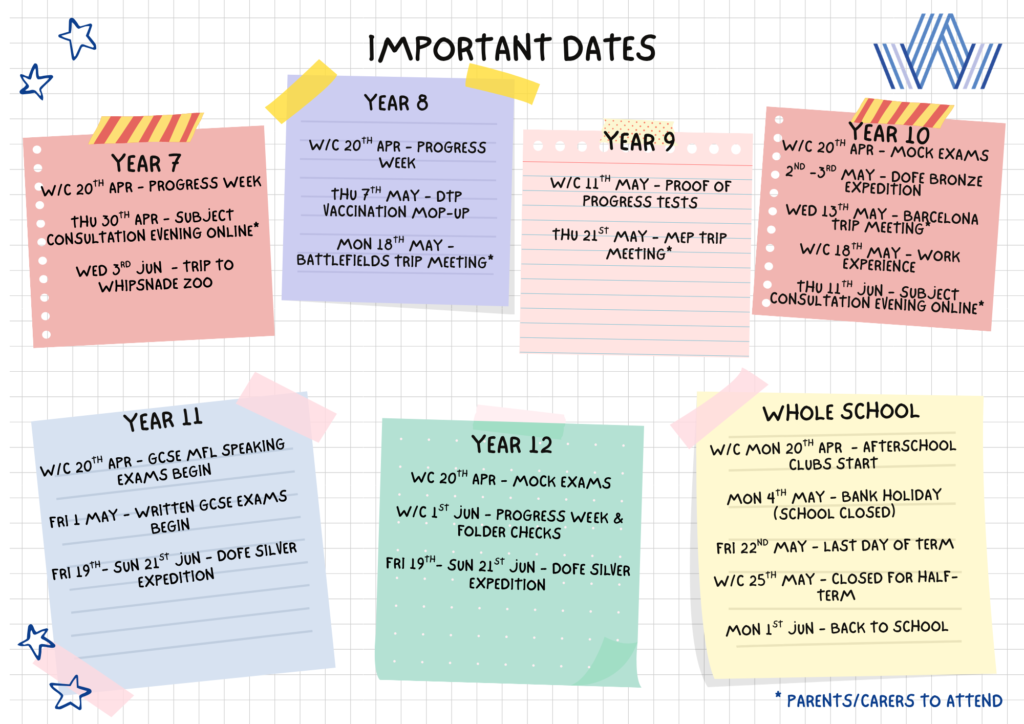 IMPORTANT DATES
YEAR 7
W/C 20TH APR - PROGRESS WEEK
THU 30TH APR - SUBJECT
CONSULTATION EVENING ONLINE*
WED 3RD JUN - TRIP TO
WHIPSNADE ZOO
YEAR 8
W/C 20TH APR - PROGRESS
WEEK
THU 7TH MAY - DTP
VACCINATION MOP-UP
MON 18TH MAY -
BATTLEFIELDS TRIP MEETING*
YEAR 9
W/C 11TH MAY - PROOF OF
PROGRESS TESTS
THU 21ST MAY - MEP TRIP
MEETING*
YEAR 10
W/C 20TH APR - MOCK EXAMS
2ND -3RD MAY - DOFE BRONZE
EXPEDITION
WED 13TH MAY - BARCELONA
TRIP MEETING*
W/C 18TH MAY - WORK
EXPERIENCE
THU 11TH JUN - SUBJECT
CONSULTATION EVENING ONLINE*
YEAR 11
W/C 20TH APR - GCSE MFL SPEAKING
EXAMS BEGIN
FRI 1 MAY - WRITTEN GCSE EXAMS
BEGIN
FRI 19TH- SUN 21ST JUN - DOFE SILVER
EXPEDITION
YEAR 12
WC 20TH APR - MOCK EXAMS
W/C 1ST JUN - PROGRESS WEEK &
FOLDER CHECKS
FRI 19TH- SUN 21ST JUN - DOFE SILVER
EXPEDITION
WHOLE SCHOOL
W/C MON 20TH APR - AFTERSCHOOL
CLUBS START
MON 4TH MAY - BANK HOLIDAY
(SCHOOL CLOSED)
FRI 22ND MAY - LAST DAY OF TERM
W/C 25TH MAY - CLOSED FOR HALF-
TERM
MON 1ST JUN - BACK TO SCHOOL
* PARENTS/CARERS TO ATTEND